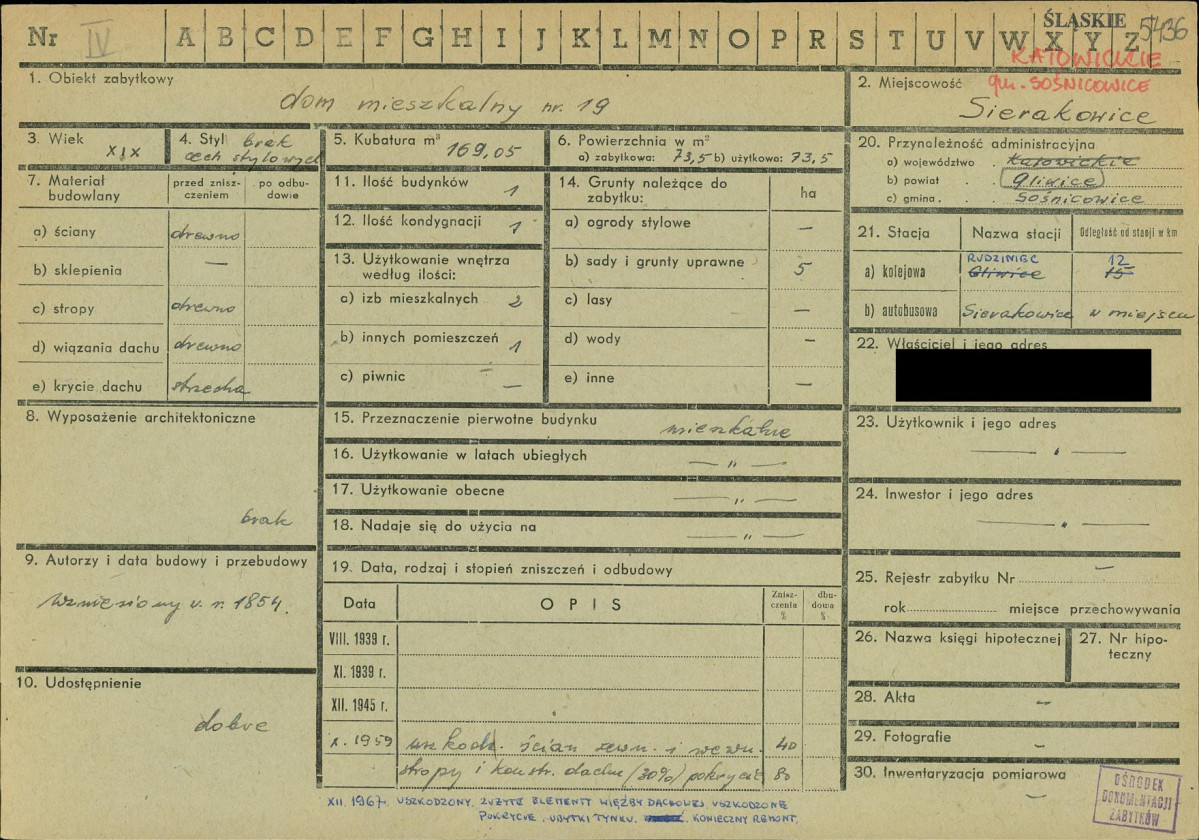 Nr IV A B C D E F G H I J K L M N O P R S T U V W X Y Z
ŚLĄSKIE
5436
KATOWICKIE
gm. SOŚNICOWICE
1. Obiekt zabytkowy
dom mieszkalny nr. 19
2. Miejscowość
Sierakowice
3. Wiek
XIX
4. Styl brak
cech stylowych
5. Kubatura m³ 169,05
6. Powierzchnia w m²
a) zabytkowa: 73,5 b) użytkowa: 73,5
7. Materiał budowlany
przed znisz-
czeniem
po odbu-
dowie
a) ściany drewno
b) sklepienia —
c) stropy drewno
d) wiązania dachu drewno
e) krycie dachu strzecha
8. Wyposażenie architektoniczne
brak
9. Autorzy i data budowy i przebudowy
wzniesiony w r. 1854.
10. Udostępnienie
dobre
11. Ilość budynków 1
12. Ilość kondygnacji 1
13. Użytkowanie wnętrza
według ilości:
a) izb mieszkalnych 2
b) innych pomieszczeń 1
c) piwnic —
14. Grunty należące do
zabytku:
ha
a) ogrody stylowe —
b) sady i grunty uprawne 5
c) lasy —
d) wody —
e) inne —
15. Przeznaczenie pierwotne budynku mieszkalne
16. Użytkowanie w latach ubiegłych — „ —
17. Użytkowanie obecne — „ —
18. Nadaje się do użycia na — „ —
19. Data, rodzaj i stopień zniszczeń i odbudowy
Data OPIS
Znisz-
czenia
%
dbu-
dowa
%
VIII. 1939 r.
XI. 1939 r.
XII. 1945 r.
X. 1959 uszkodz. ścian zewn. i wewn. 40
stropy i konstr. dachu (30%) pokrycie 80
XII. 1967r. USZKODZONY. ZUŻYTE ELEMENTY WIĘŹBY DACHOWEJ, USZKODZONE
POKRYCIE, UBYTKI TYNKU. KONIECZNY REMONT.
20. Przynależność administracyjna
a) województwo . Katowickie
b) powiat . . Gliwice
c) gmina . . . Sośnicowice
21. Stacja Nazwa stacji Odległość od stacji w km
RUDZINIEC 12
a) kolejowa Gliwice 15
b) autobusowa Sierakowice w miejscu
22. Właściciel i jego adres
23. Użytkownik i jego adres
— „ —
24. Inwestor i jego adres
— „ —
25. Rejestr zabytku Nr —
rok miejsce przechowywania
26. Nazwa księgi hipotecznej
27. Nr hipo-
teczny
28. Akta —
29. Fotografie —
30. Inwentaryzacja pomiarowa —
OŚRODEK
DOKUMENTACJI
ZABYTKÓW